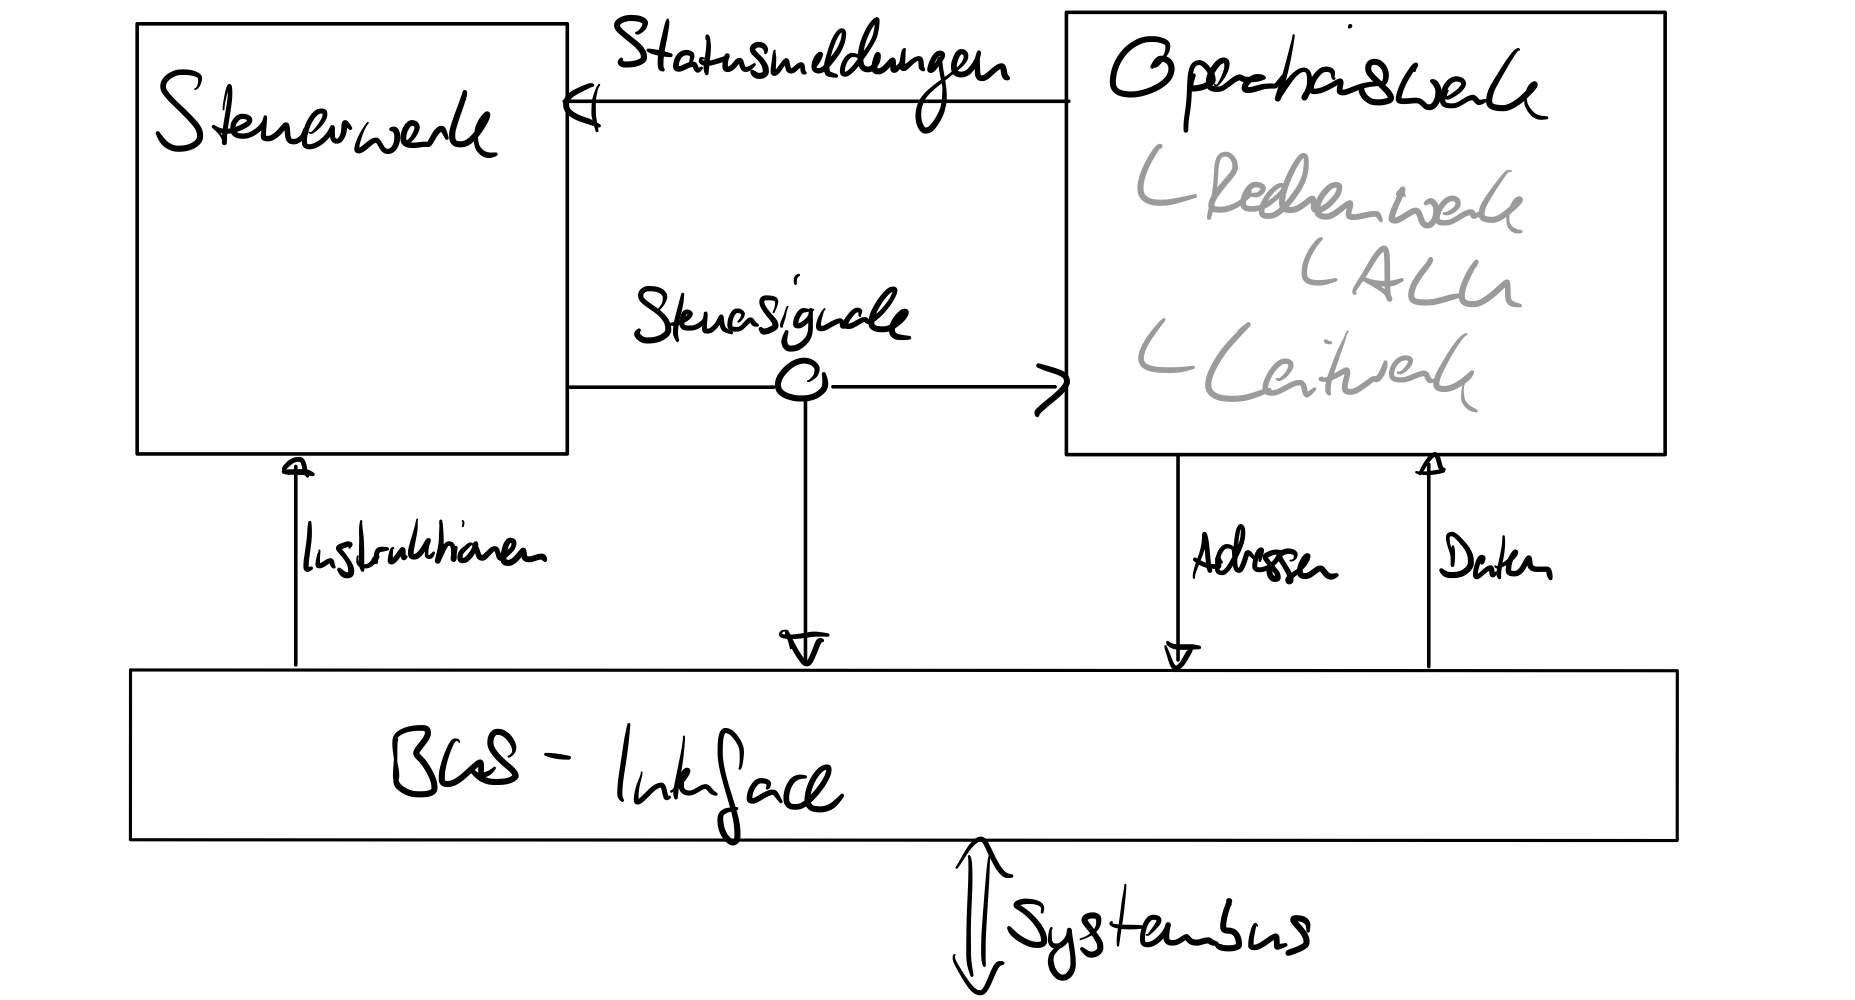 Statusmeldungen
Steuerwerk
Operationswerk
Rechenwerk
ALU
Leitwerk
Steuersignale
Instruktionen
Adressen
Daten
BUS - Interface
Systembus